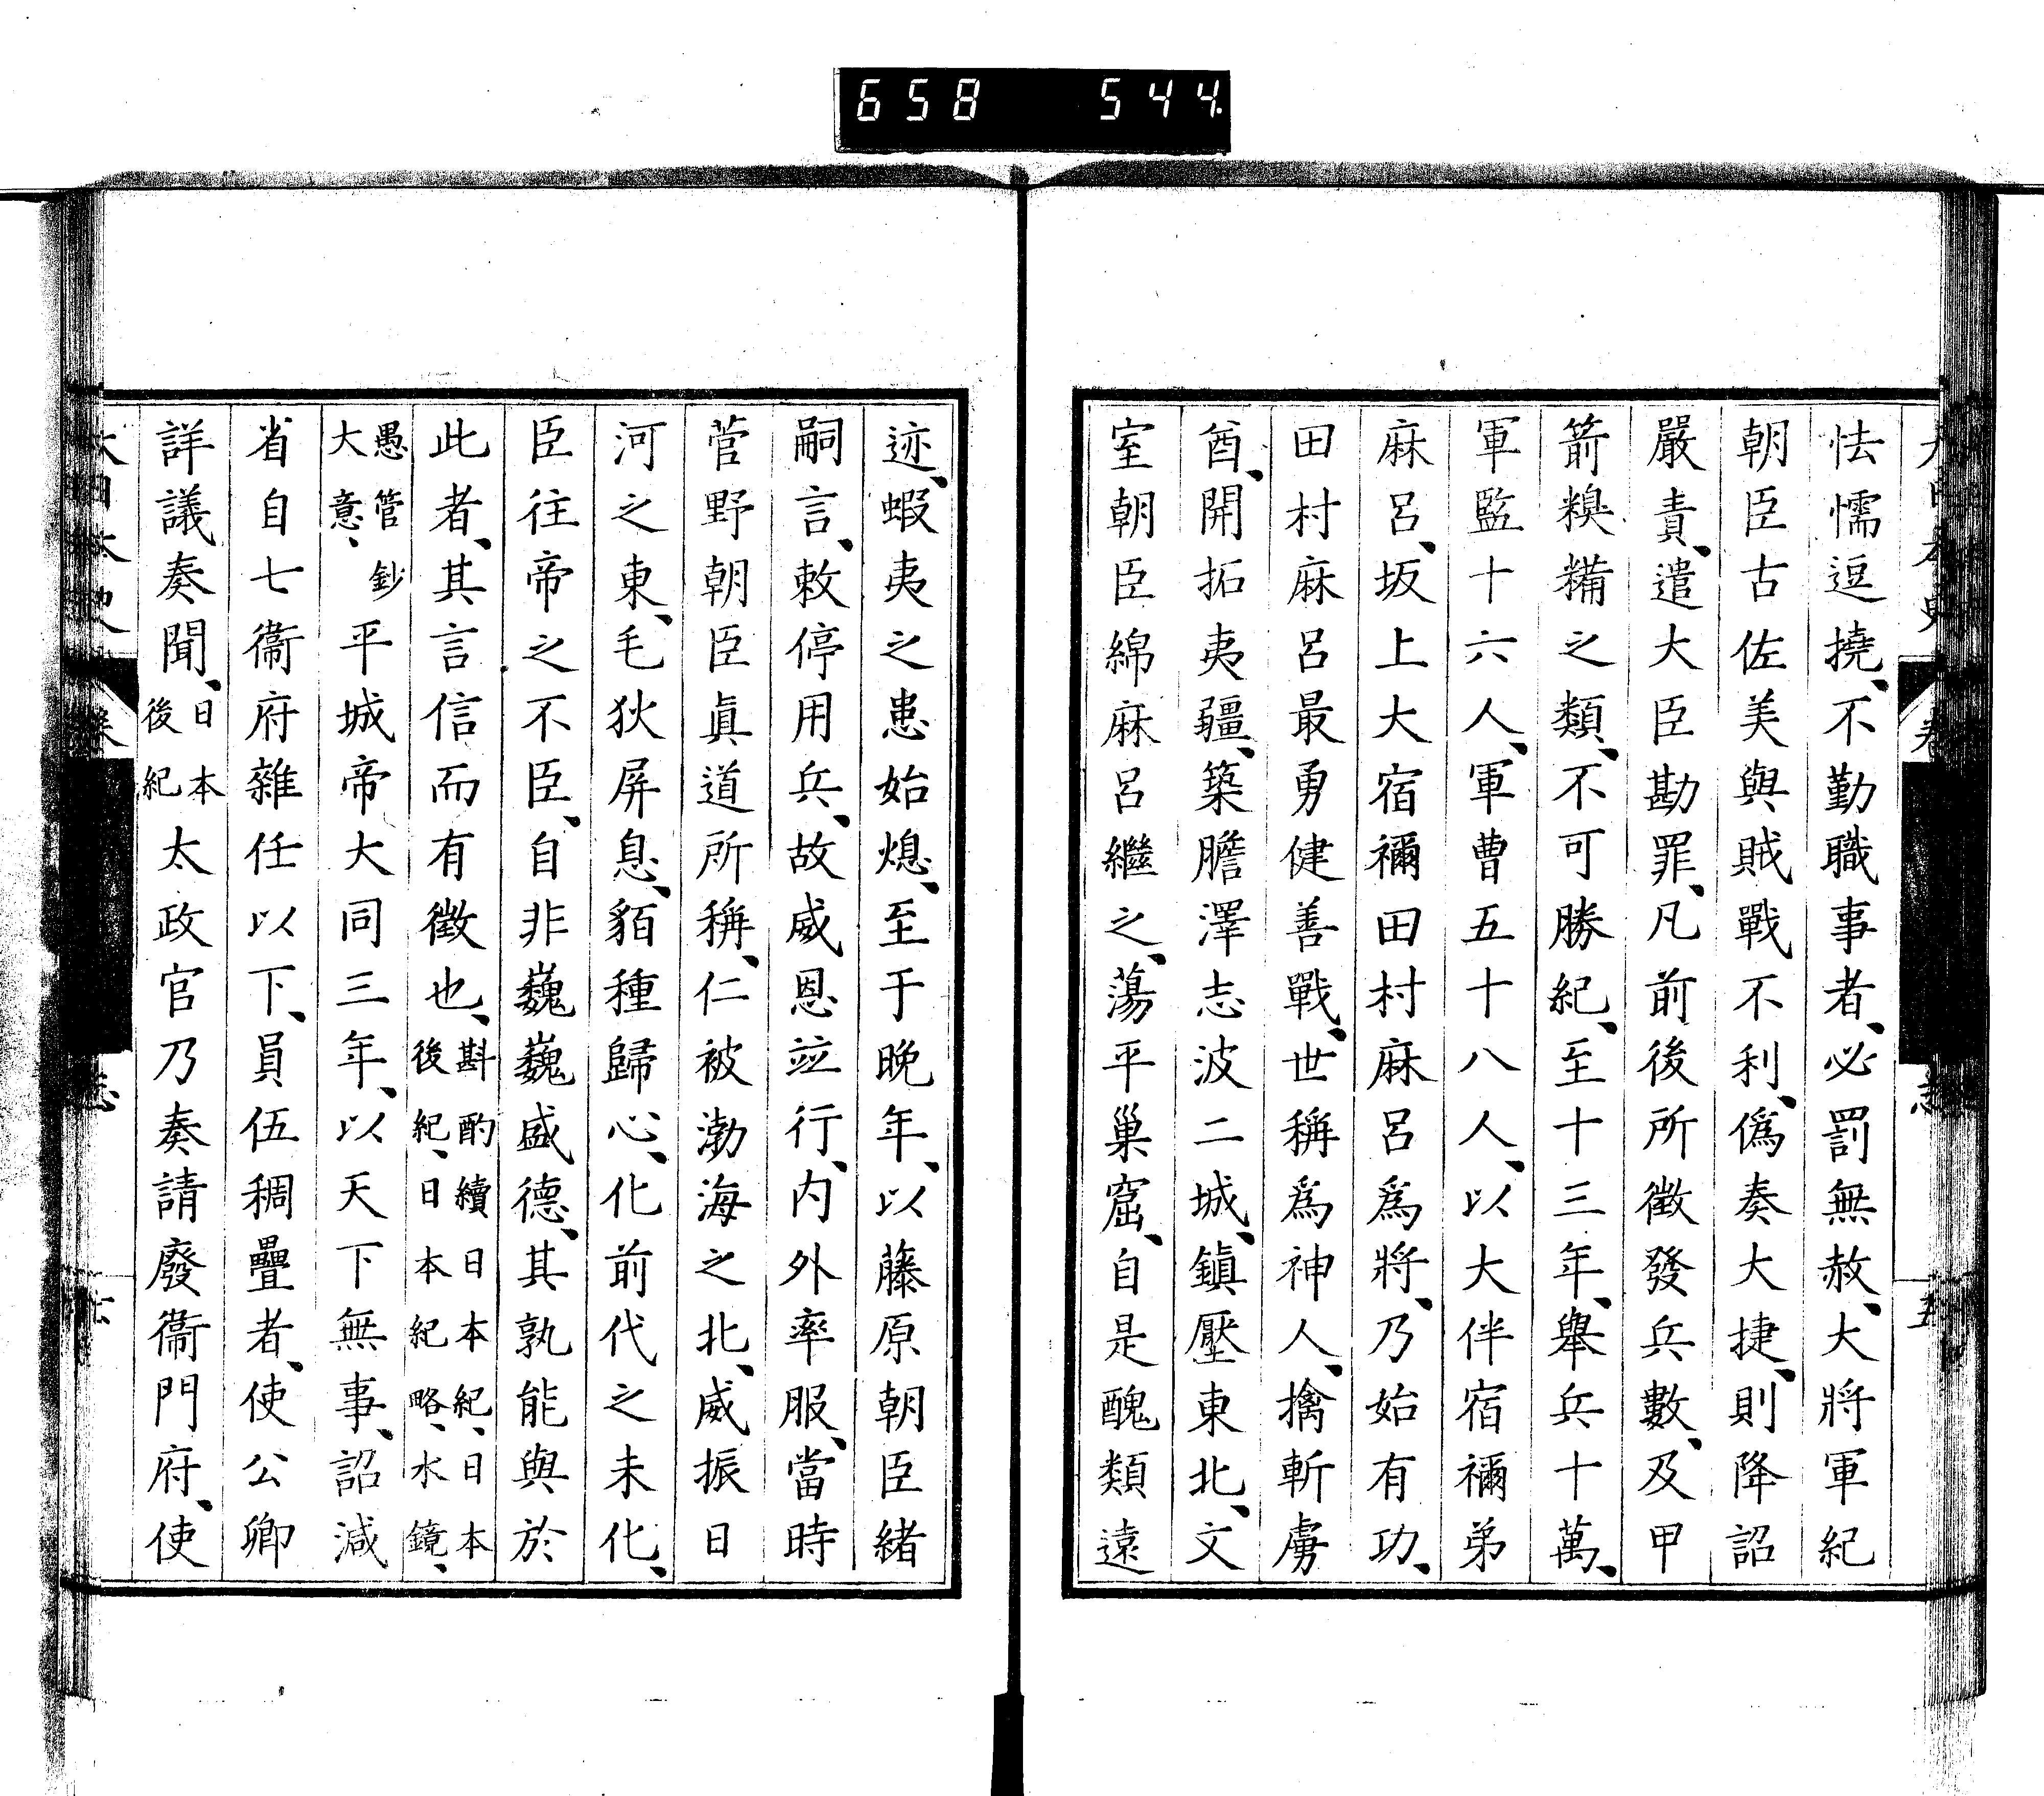 658 544
怯懦逗撓、不勤職事者、必罰無赦、大將軍紀
朝臣古佐美與賊戰不利、僞奏大捷、則降詔
嚴責、遣大臣勘罪、凡前後所徵發兵數、及甲
箭糗糒之類、不可勝紀、至十三年、擧兵十萬、
軍監十六人、軍曹五十八人、以大伴宿禰弟
麻呂、坂上大宿禰田村麻呂爲將、乃始有功、
田村麻呂最勇健善戰、世稱爲神人、擒斬虜
酋、開拓夷疆、築膽澤志波二城、鎮壓東北、文
室朝臣綿麻呂繼之、蕩平巢窟、自是醜類遠
迹、蝦夷之患始熄、至于晩年、以藤原朝臣緒
嗣言、敕停用兵、故威恩竝行、内外率服、當時
菅野朝臣眞道所稱、仁被渤海之北、威振日
河之東、毛狄屏息、貊種歸心、化前代之未化、
臣往帝之不臣、自非巍巍盛德、其孰能與於
此者、其言信而有徵也、斟酌續日本紀、日本後紀、日本紀略、水鏡、
愚管鈔大意、平城帝大同三年、以天下無事、詔減
省自七衞府雜任以下、員伍稠疊者、使公卿
詳議奏聞、日本後紀太政官乃奏請廢衞門府、使